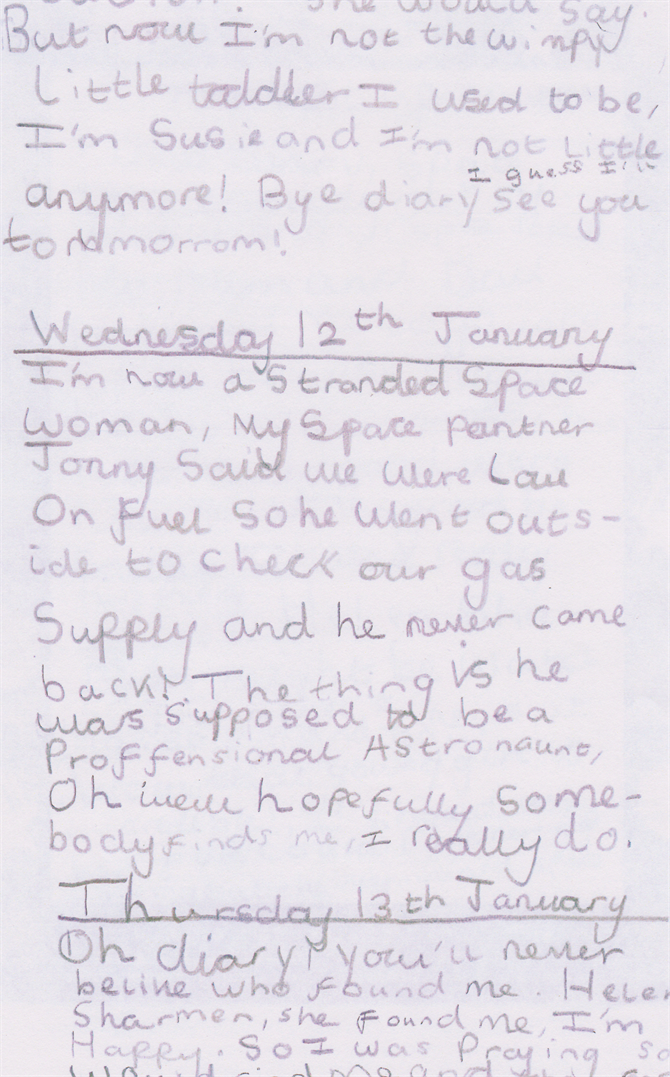 She would say.
But now I'm not the wimpy
Little toddler I used to be,
I'm Susie and I'm not Little
I guess I'll
anymore! Bye diary see you
tommorrom!
Wednesday 12th January
I'm now a Stranded Space
Woman, My Space Pantner
Jonny Said we were Low
On fuel So he Went outs-
ide to check our gas
Supply and he never came
back! The thing is he
was Supposed to be a
Proffensional Astronaunt,
Oh well hopefully Some-
body finds me, I really do.
Thursday 13th January
Oh diary! you'll never
belive who found me. Helen
Sharmen, she found me, I'm
Happy. So I was Praying so